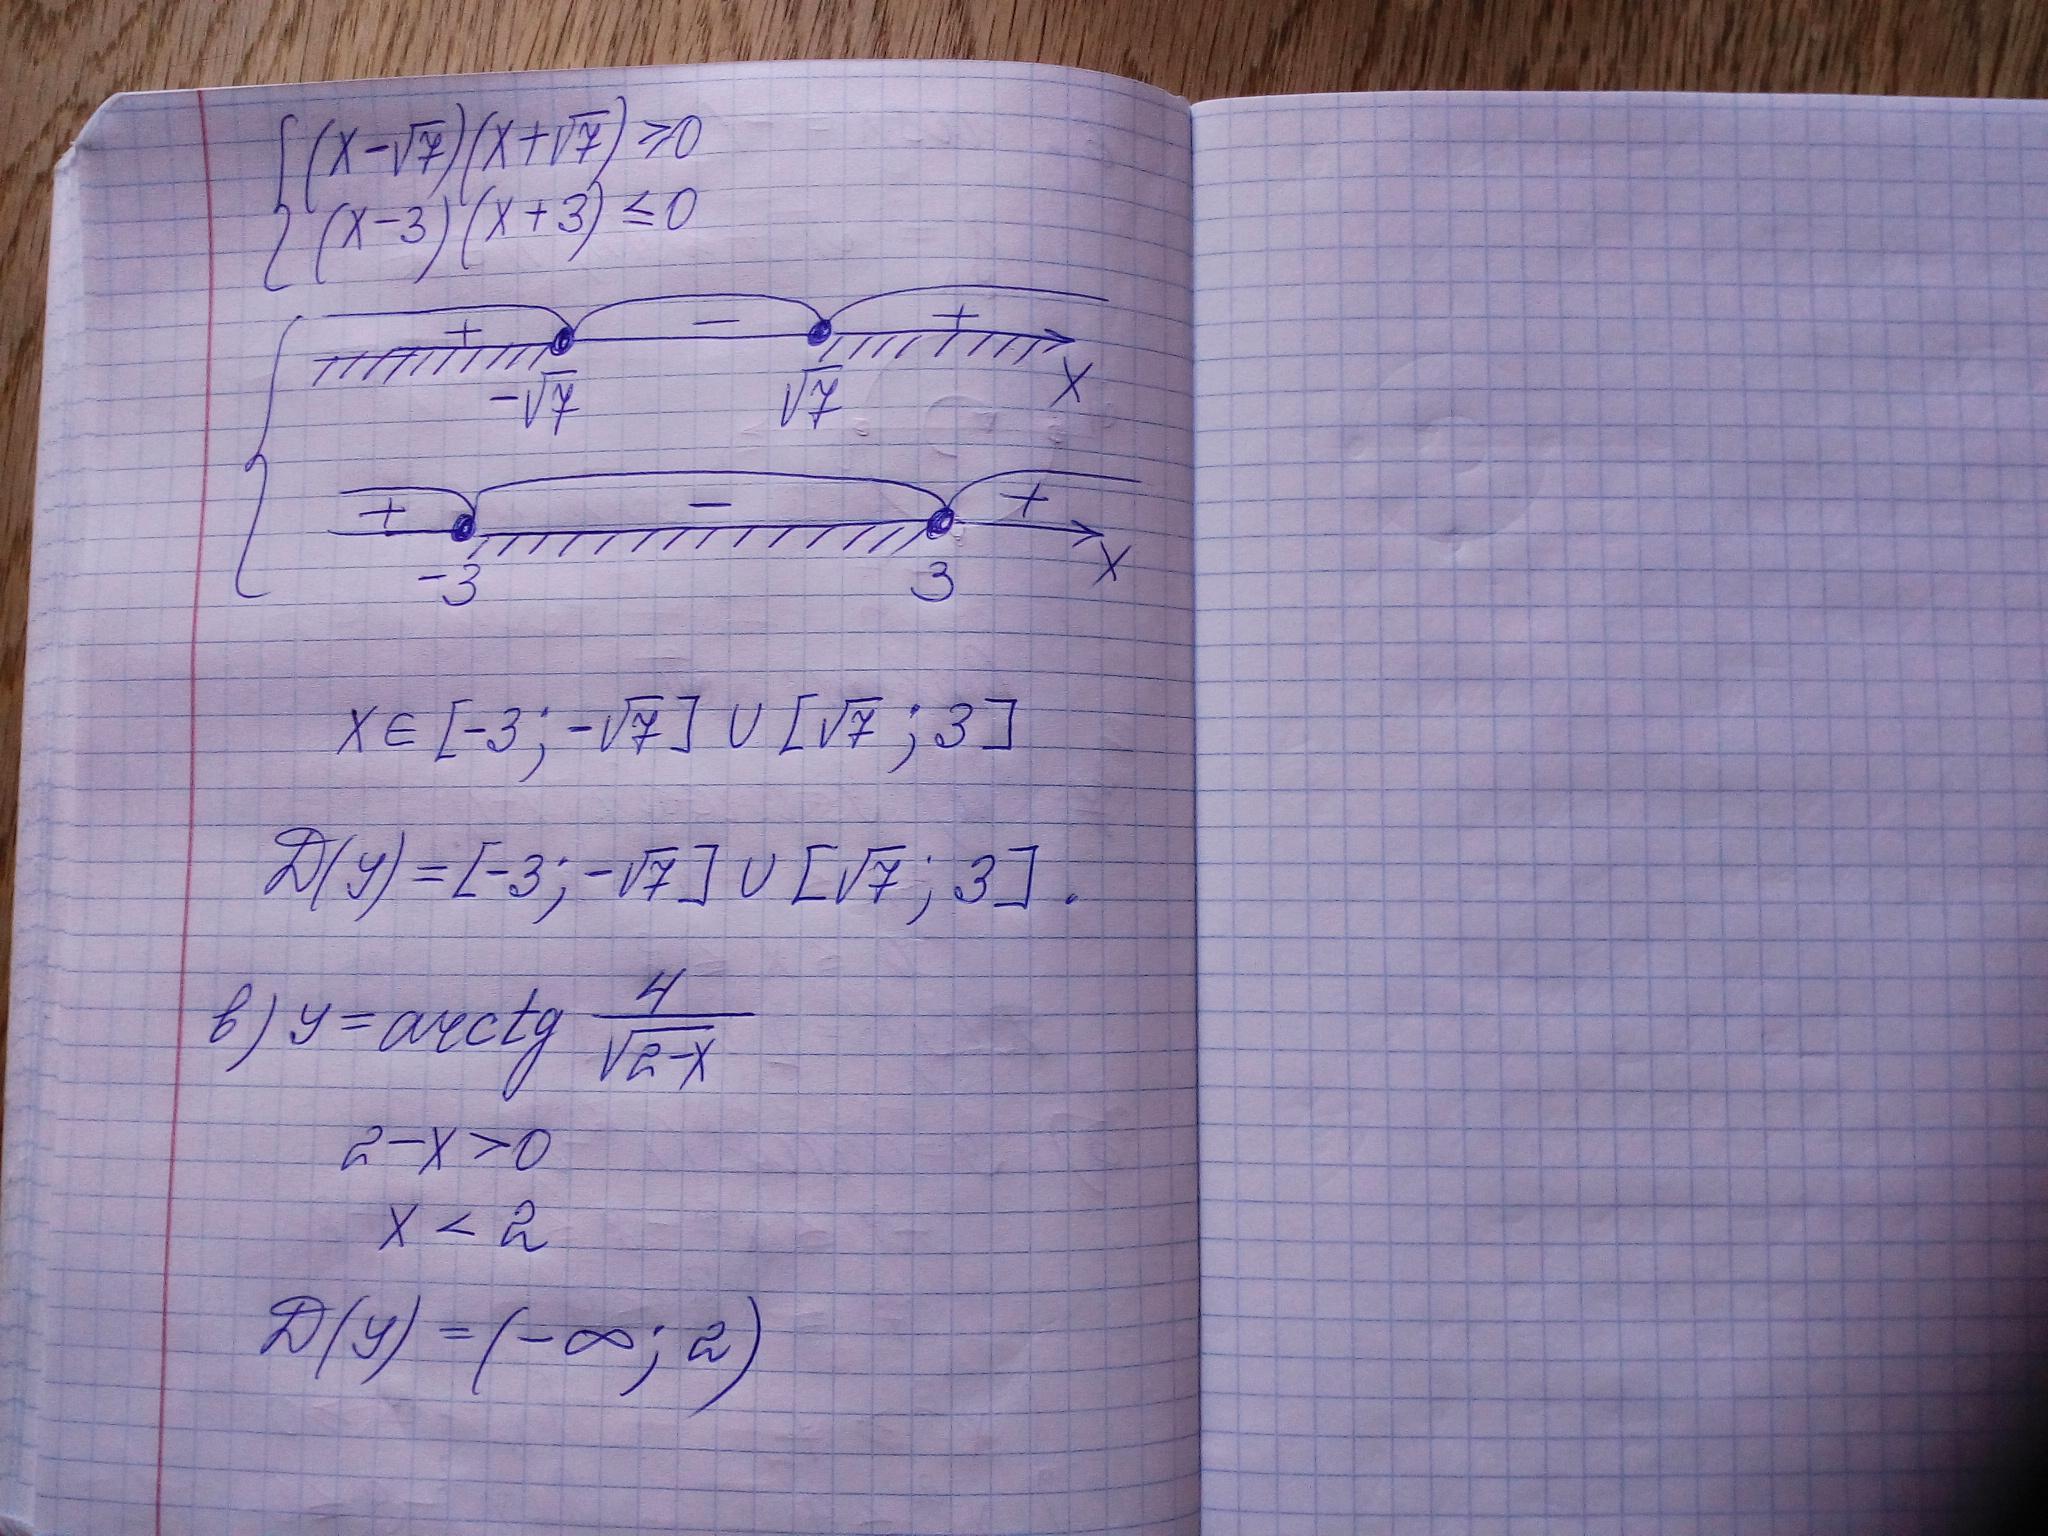 {(x-√7)(x+√7)≥0
(x-3)(x+3)≤0
+ - +
-√7 √7 x
+ - +
-3 3 x
x∈[-3;-√7]∪[√7;3]
D(y)=[-3;-√7]∪[√7;3].
в) y=arcctg 4/√2-x
2-x>0
x<2
D(y)=(-∞;2)